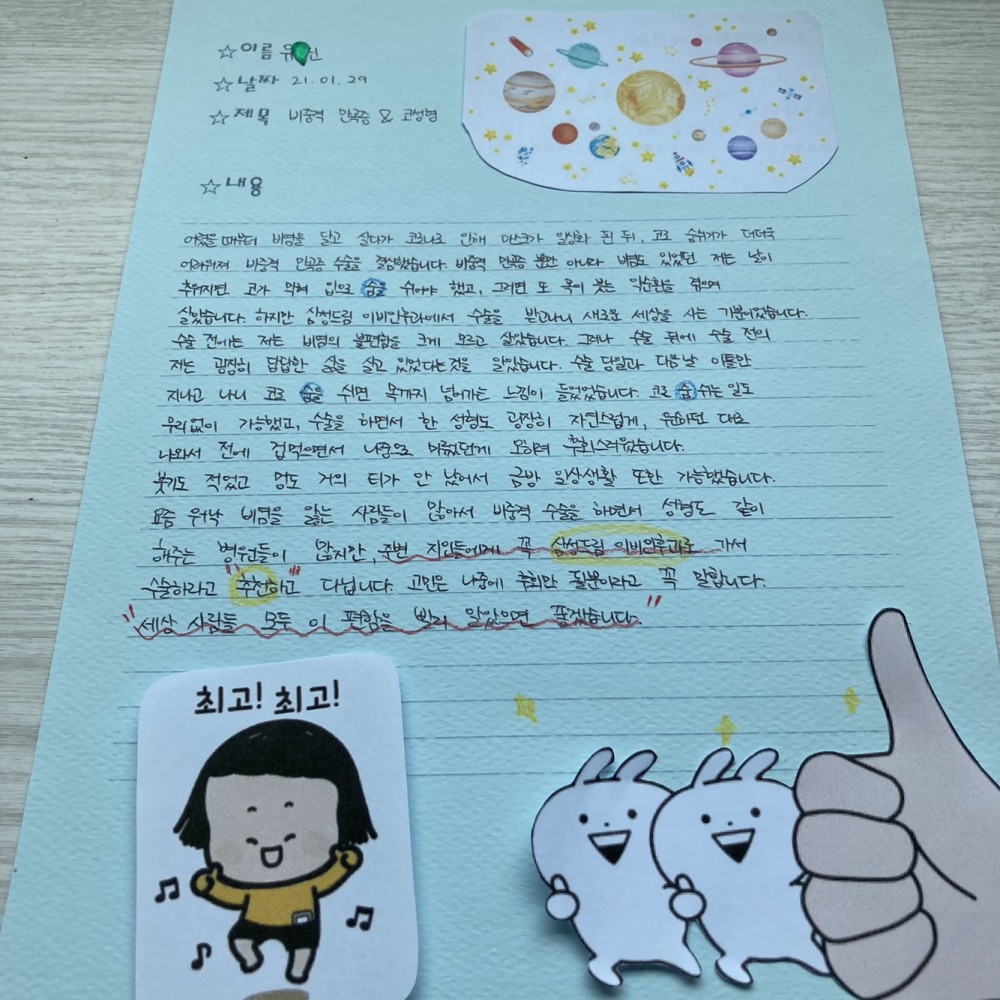 ☆이름 유 진
☆날짜 21.01.29
☆제목 비중격 만곡증 & 코성형
☆내용
어렸을 때부터 비염을 달고 살다가 코로나로 인해 마스크가 일상화 된 뒤, 코로 숨쉬기가 더더욱
어려워져 비중격 만곡증 수술을 결심했습니다. 비중격 만곡증 뿐만 아니라 비염도 있었던 저는 날이
추워지면 코가 막혀 입으로 숨을 쉬어야 했고, 그러면 또 목이 붓는 악순환을 겪으며
살았습니다. 하지만 삼성드림 이비인후과에서 수술을 받고나니 새로운 세상을 사는 기분이었습니다.
수술 전에는 저는 비염의 불편함을 크게 모르고 살았습니다. 그러나 수술 뒤에 수술 전의
저는 굉장히 답답한 삶을 살고 있었다는 것을 알았습니다. 수술 당일과 다음날 이틀만
지나고 나니 코로 숨을 쉬면 목까지 넘어가는 느낌이 들었었습니다. 코로 숨 쉬는 일도
무리없이 가능했고, 수술을 하면서 한 성형도 굉장히 자연스럽게, 원하던 대로
나와서 전에 겁먹으면서 나중으로 미뤘던게 오히려 후회스러웠습니다.
붓기도 적었고 멍도 거의 티가 안 났어서 금방 일상생활 또한 가능했습니다.
요즘 워낙 비염을 앓는 사람들이 많아서 비중격 수술을 하면서 성형도 같이
해주는 병원들이 많지만, 주변 지인들에게 꼭 삼성드림 이비인후과로 가서
수술하라고 "추천하고" 다닙니다. 고민은 나중에 후회만 될뿐이라고 꼭 말합니다.
"세상 사람들 모두 이 편함을 빨리 알았으면 좋겠습니다."
최고! 최고!